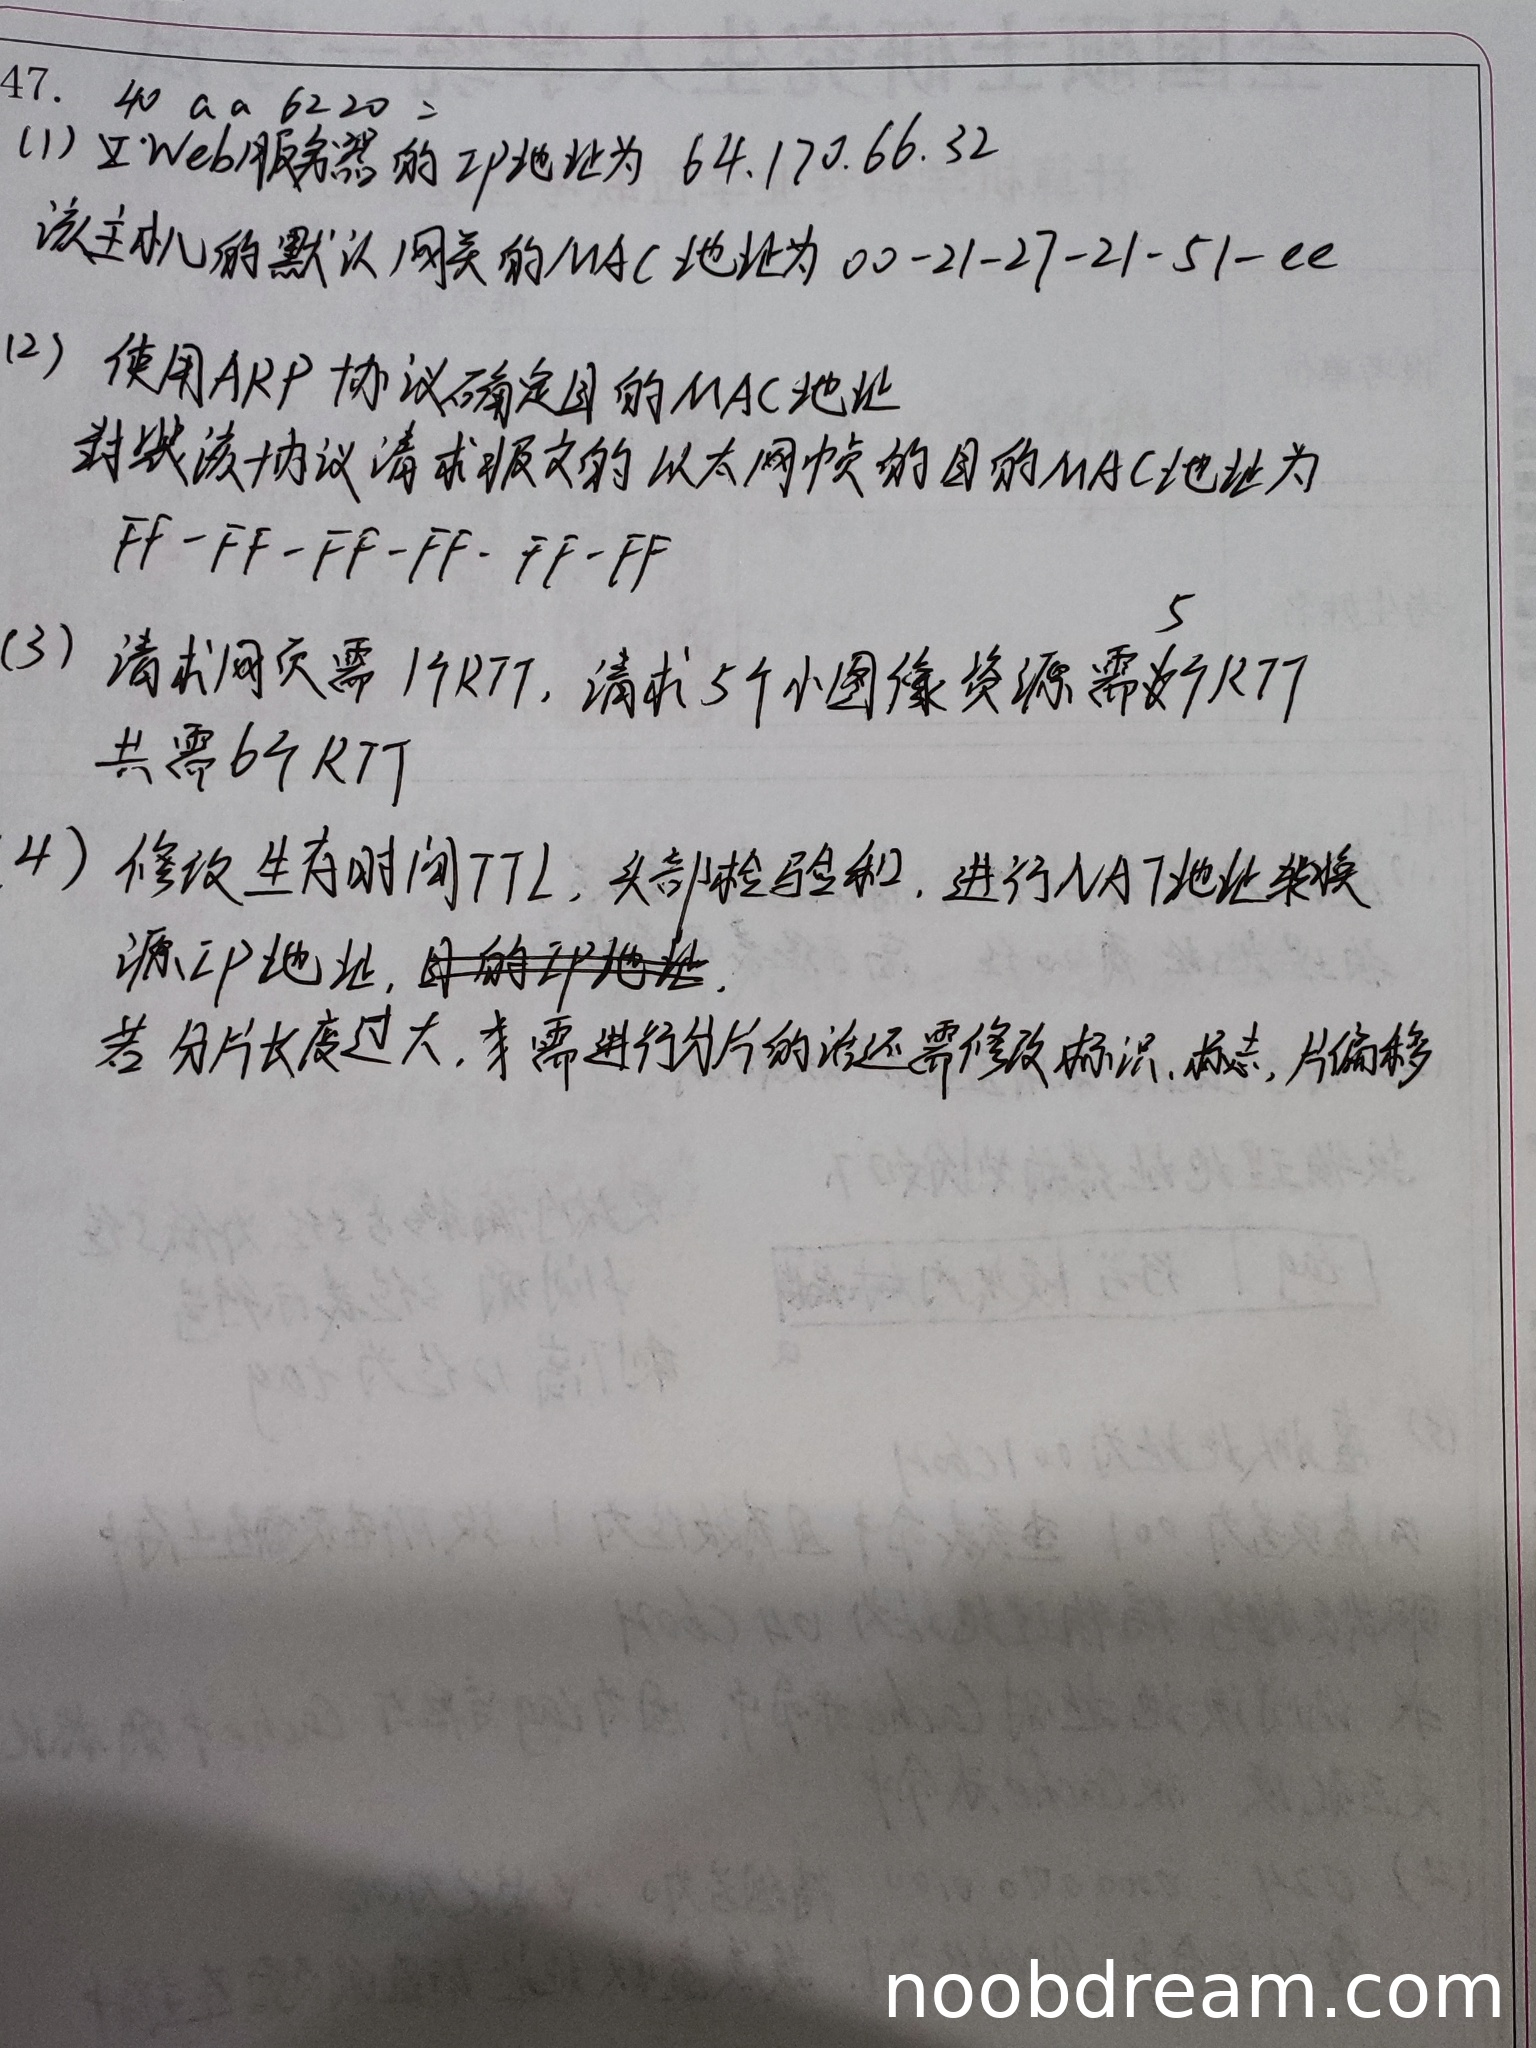 47.
40 aa 6220 =
(1) Web服务器的IP地址为 64.170.66.32
该主机的默认网关的MAC地址为 00-21-27-21-51-ee
(2) 使用ARP协议确定目的MAC地址
封装该协议请求报文的以太网帧的目的MAC地址为
FF-FF-FF-FF-FF-FF
(3) 请求网页需1个RTT, 请求5个小图像资源需5个RTT
共需6个RTT
(4) 修改生存时间TTL, 头部检验和, 进行NAT地址转换
源IP地址, 目的IP地址.
若分片长度过大, 需进行分片的话还需修改标识、标志, 片偏移
noobdream.com